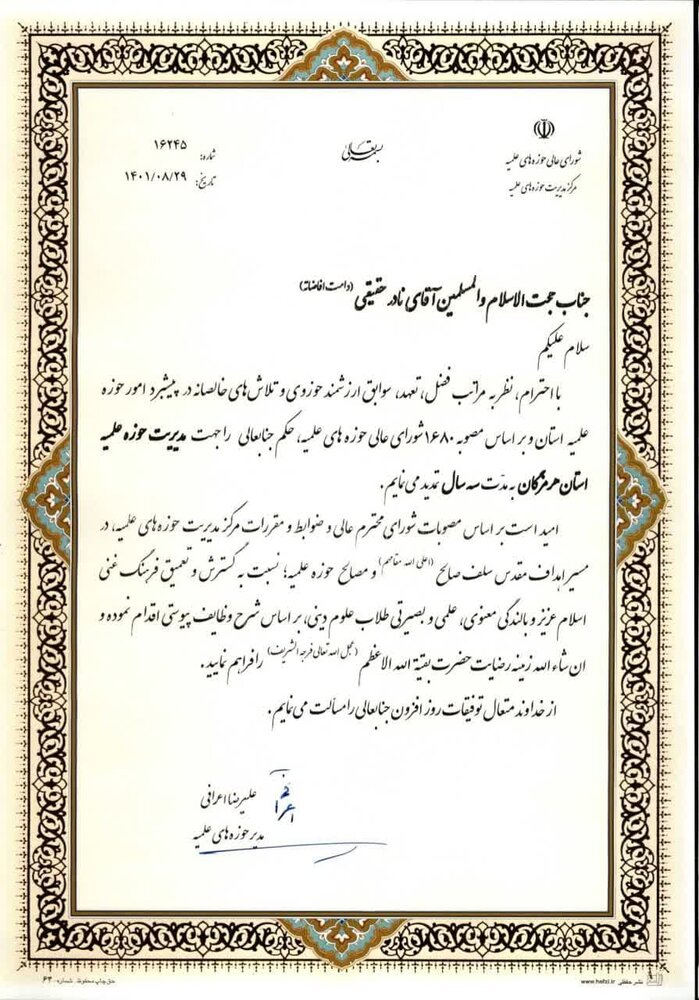 بسمه تعالی
شورای عالی حوزه های علمیه
مرکز مدیریت حوزه های علمیه
شماره: ۱۶۲۴۵
تاریخ: ۱۴۰۱/۰۸/۲۹
جناب حجت الاسلام والمسلمین آقای نادر حقیقی (دامت افاضاته)
سلام علیکم
با احترام، نظر به مراتب فضل، تعهد، سوابق ارزشمند حوزوی و تلاش های خالصانه در پیشبرد امور حوزه
علمیه استان و بر اساس مصوبه ۱۶۸۰ شورای عالی حوزه های علمیه، حکم جنابعالی را جهت مدیریت حوزه علمیه
استان هرمزگان به مدت سه سال تمدید می نمایم.
امید است بر اساس مصوبات شورای محترم عالی و ضوابط و مقررات مرکز مدیریت حوزه های علمیه، در
مسیر اهداف مقدس سلف صالح (اعلی الله مقامهم) و مصالح حوزه علمیه؛ نسبت به گسترش و تعمیق فرهنگ غنی
اسلام عزیز و بالندگی معنوی، علمی و بصیرتی طلاب علوم دینی، بر اساس شرح وظایف پیوستی اقدام نموده و
ان شاء الله زمینه رضایت حضرت بقیة الله الاعظم (عجل الله تعالی فرجه الشریف) را فراهم نمایید.
از خداوند متعال توفیقات روز افزون جنابعالی را مسألت می نمایم.
علیرضا اعرافی
مدیر حوزه های علمیه
نشر حفظی www.hefzi.ir
حق چاپ محفوظ شماره ۶۴